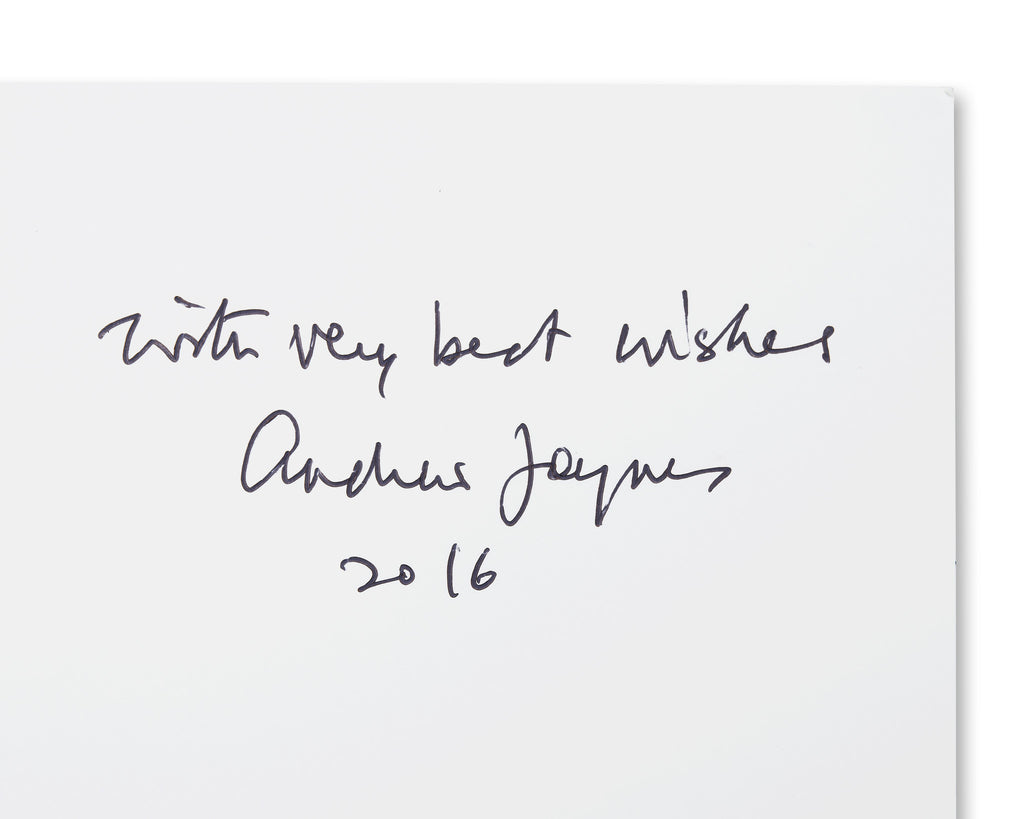 with very best wishes
Andrew Jaynes
2016